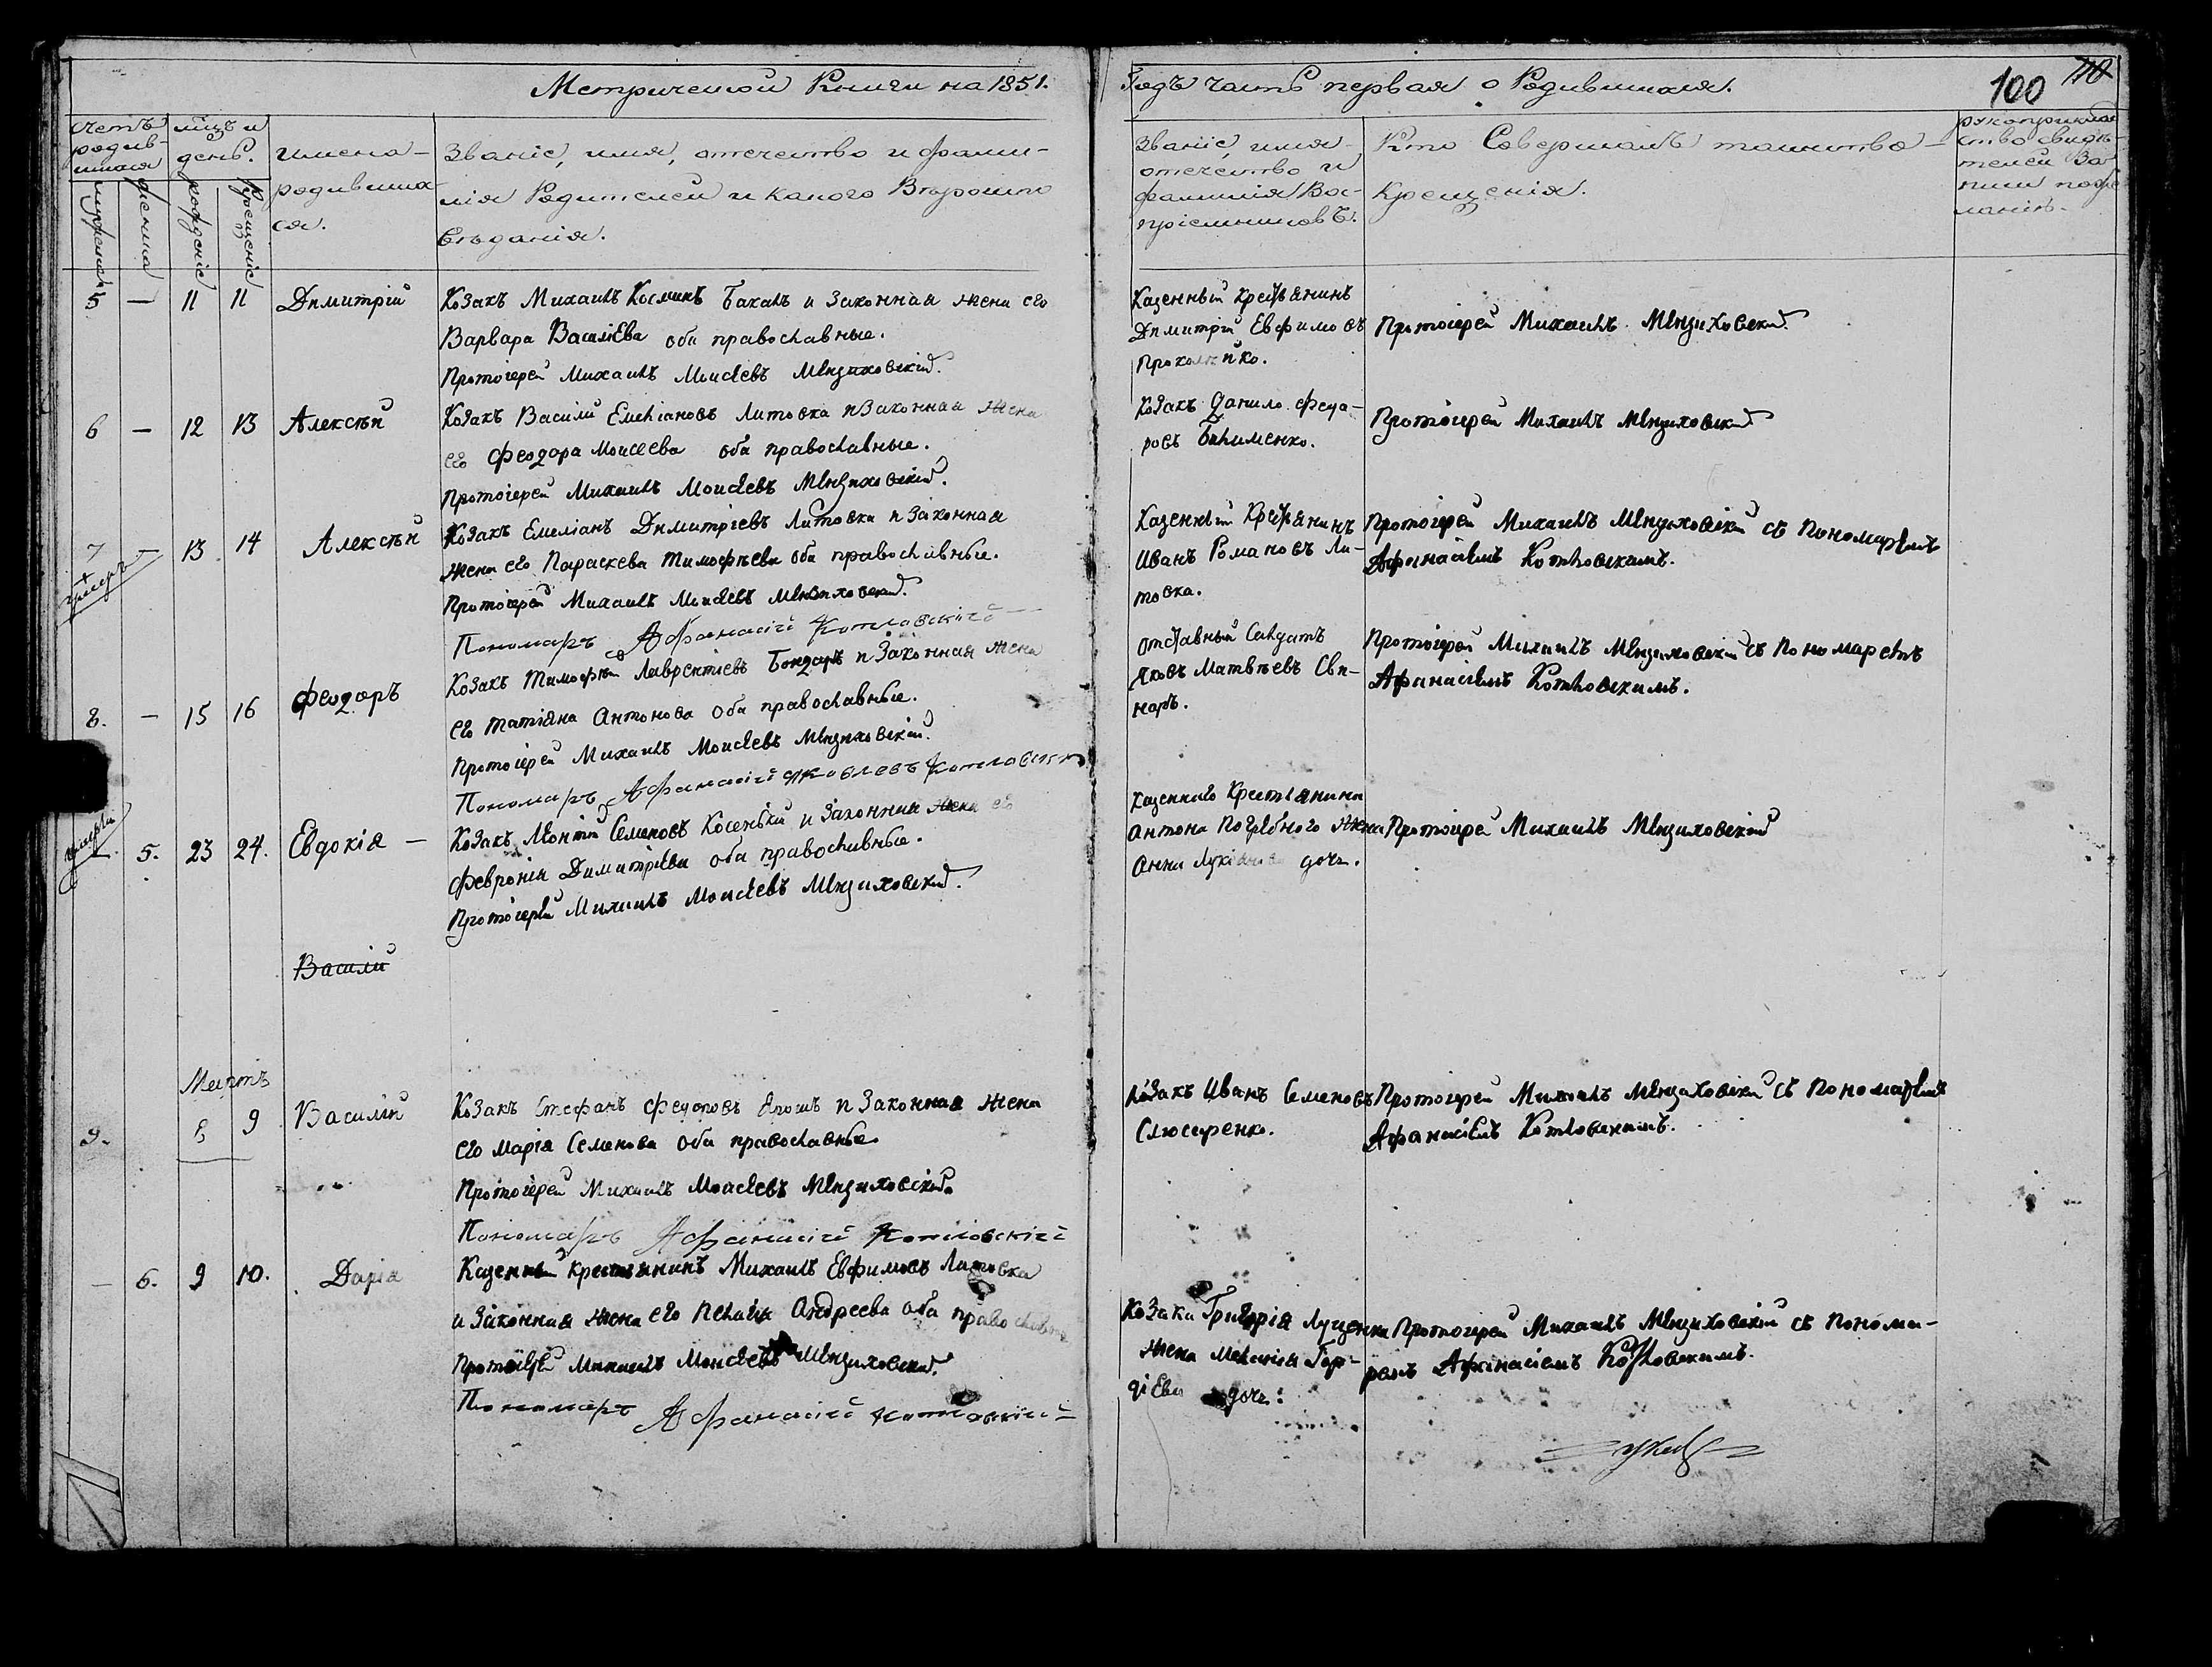 Метрической Книги на 1851.
Годъ часть первая о Родившихся.
100
110
счетъ родив-
шихся
мѣсяцъ и
день.
имена
родивших
ся.
Званіе, имя, отечество и фами-
лія Родителей и какого Вѣроис
повѣданія.
мужеска
женска
рожденіе
крещеніе
Званіе, имя
отечество и
фамилія Вос-
пріемниковъ.
Кто Совершалъ таинство
Крещенія.
рукоприклад
ство свидѣ-
телей За
писи
5 — 11 11 Димитрій
Козакъ Михаилъ Косминъ Бакалъ и Законная жена его
Варвара Василіева оба православные.
Протоіерей Михаилъ Моисеевъ
Казенный Крестьянинъ
Димитрій Евфимовъ
Протоіерей Михаилъ
6 — 12 13 Алексѣй
Козакъ Василій Емеліановъ Литовка и Законная жена
его Феодора Моисеева оба православные.
Протоіерей Михаилъ Моисеевъ
Козакъ Данило Федо-
ровъ
Протоіерей Михаилъ
7 — 13 14 Алексѣй
умеръ
Козакъ Емеліанъ Димитріевъ Литовка и Законная
жена его Параскева Тимофѣева оба православные.
Протоіерей Михаилъ Моисеевъ
Пономарь Афанасій Котловскій
Казенный Крестьянинъ
Иванъ Романовъ Ли-
товка.
Протоіерей Михаилъ съ Пономаремъ
Афанасіемъ Котловскимъ.
8. — 15 16 Феодоръ
Козакъ Тимофей Лаврентіевъ Бондарь и Законная жена
его Татіяна Антонова оба православные.
Протоіерей Михаилъ Моисеевъ
Пономарь Афанасій Яковлевъ Котловскій
Отставный Салдатъ
Яковъ Матвѣевъ Сви-
наръ.
Протоіерей Михаилъ съ Пономаремъ
Афанасіемъ Котловскимъ.
умерла
5. 23 24. Евдокія —
Козакъ Леонтій Семеновъ Косенькій и Законная жена его
Февронія Димитріева оба православные.
Протоіерей Михаилъ Моисеевъ
Казеннаго Крестіянина
Антона Погребного жена
Анна дочь.
Протоіерей Михаилъ
Василій
Мартъ
9. 8 9 Василій
Козакъ Стефанъ и Законная жена
его Марія Семенова оба православные
Протоіерей Михаилъ Моисеевъ
Пономарь Афанасій Котловскій
Козакъ Иванъ Семеновъ
Слюсаренко.
Протоіерей Михаилъ съ Пономаремъ
Афанасіемъ Котловскимъ.
— 6. 9 10. Дарія
Казенный крестьянинъ Михаилъ Евфимовъ Литовка
и Законная жена его Пелагія Андреева оба православные
Протоіерей Михаилъ Моисеевъ
Пономарь Афанасій Котловскій
Козака Григорія Луценка
жена Меланія Гор-
діева дочь:
Протоіерей Михаилъ съ Понома-
ремъ Афанасіемъ Котловскимъ.